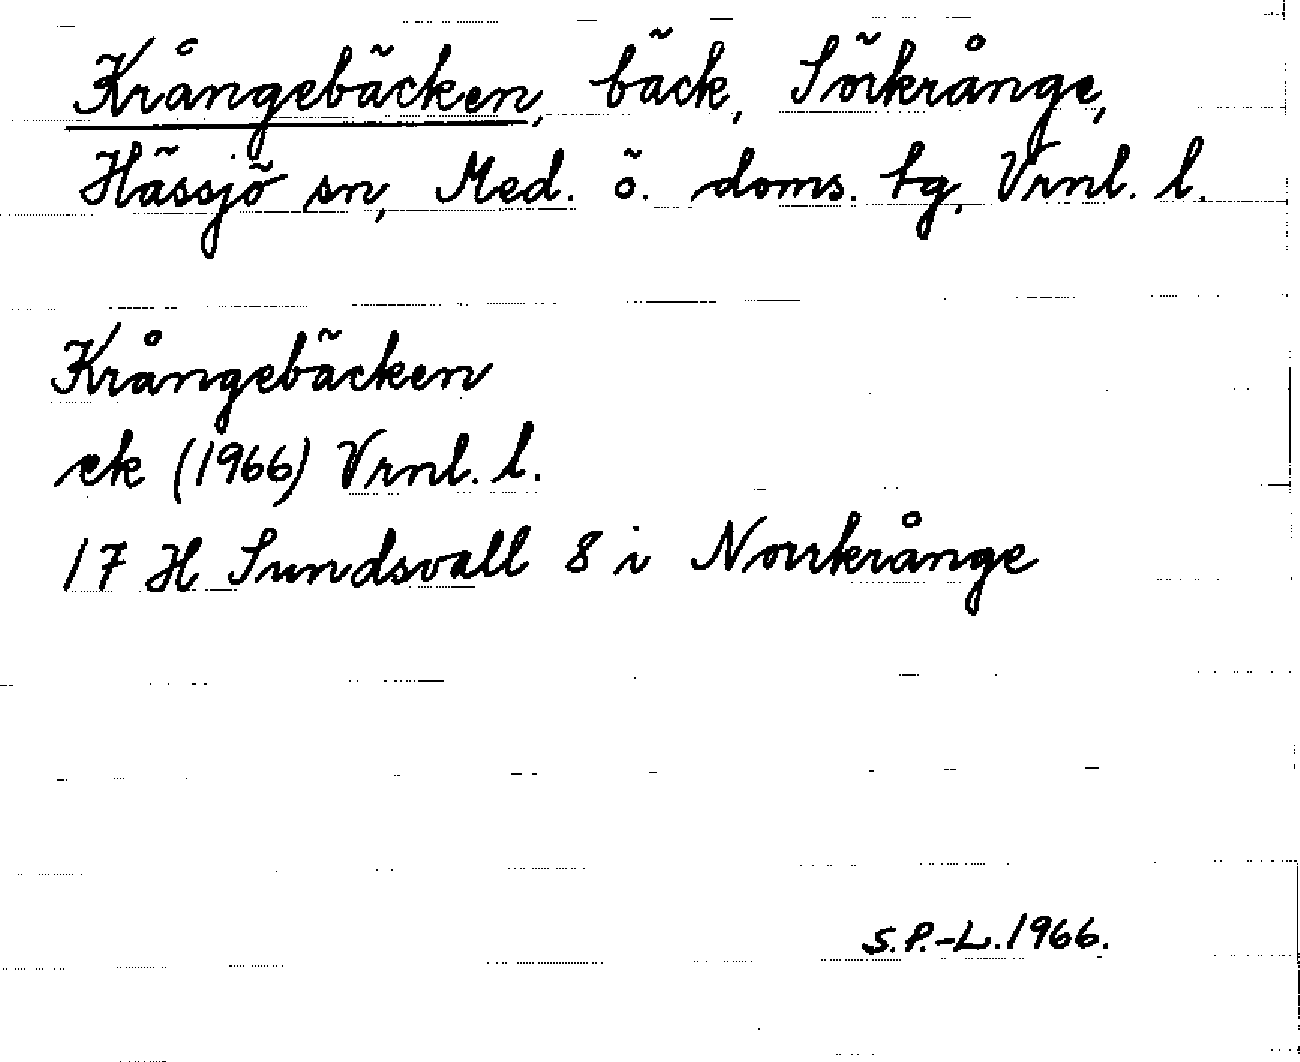 Krångebäcken, bäck, Sörkrånge,
Hässjö sn, Med. ö. doms. tg, Vrnl. l.
Krångebäcken
ek (1966) Vrnl. l.
17 H Sundsvall 8 i Norrkrånge
S.P.-L. 1966.